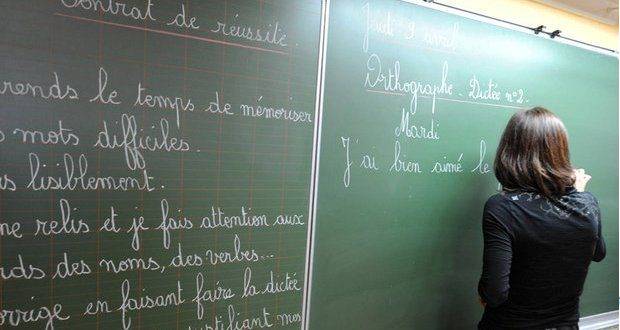 Contrat de réussite.
rends le temps de mémoriser
mots difficiles.
lisiblement.
me relis et je fais attention aux
rds des noms, des verbes...
orrige en faisant faire la dictée
ustifiant mes
Jeudi 9 avril
Orthographe - Dictée n°2.
Mardi
J'ai bien aimé le